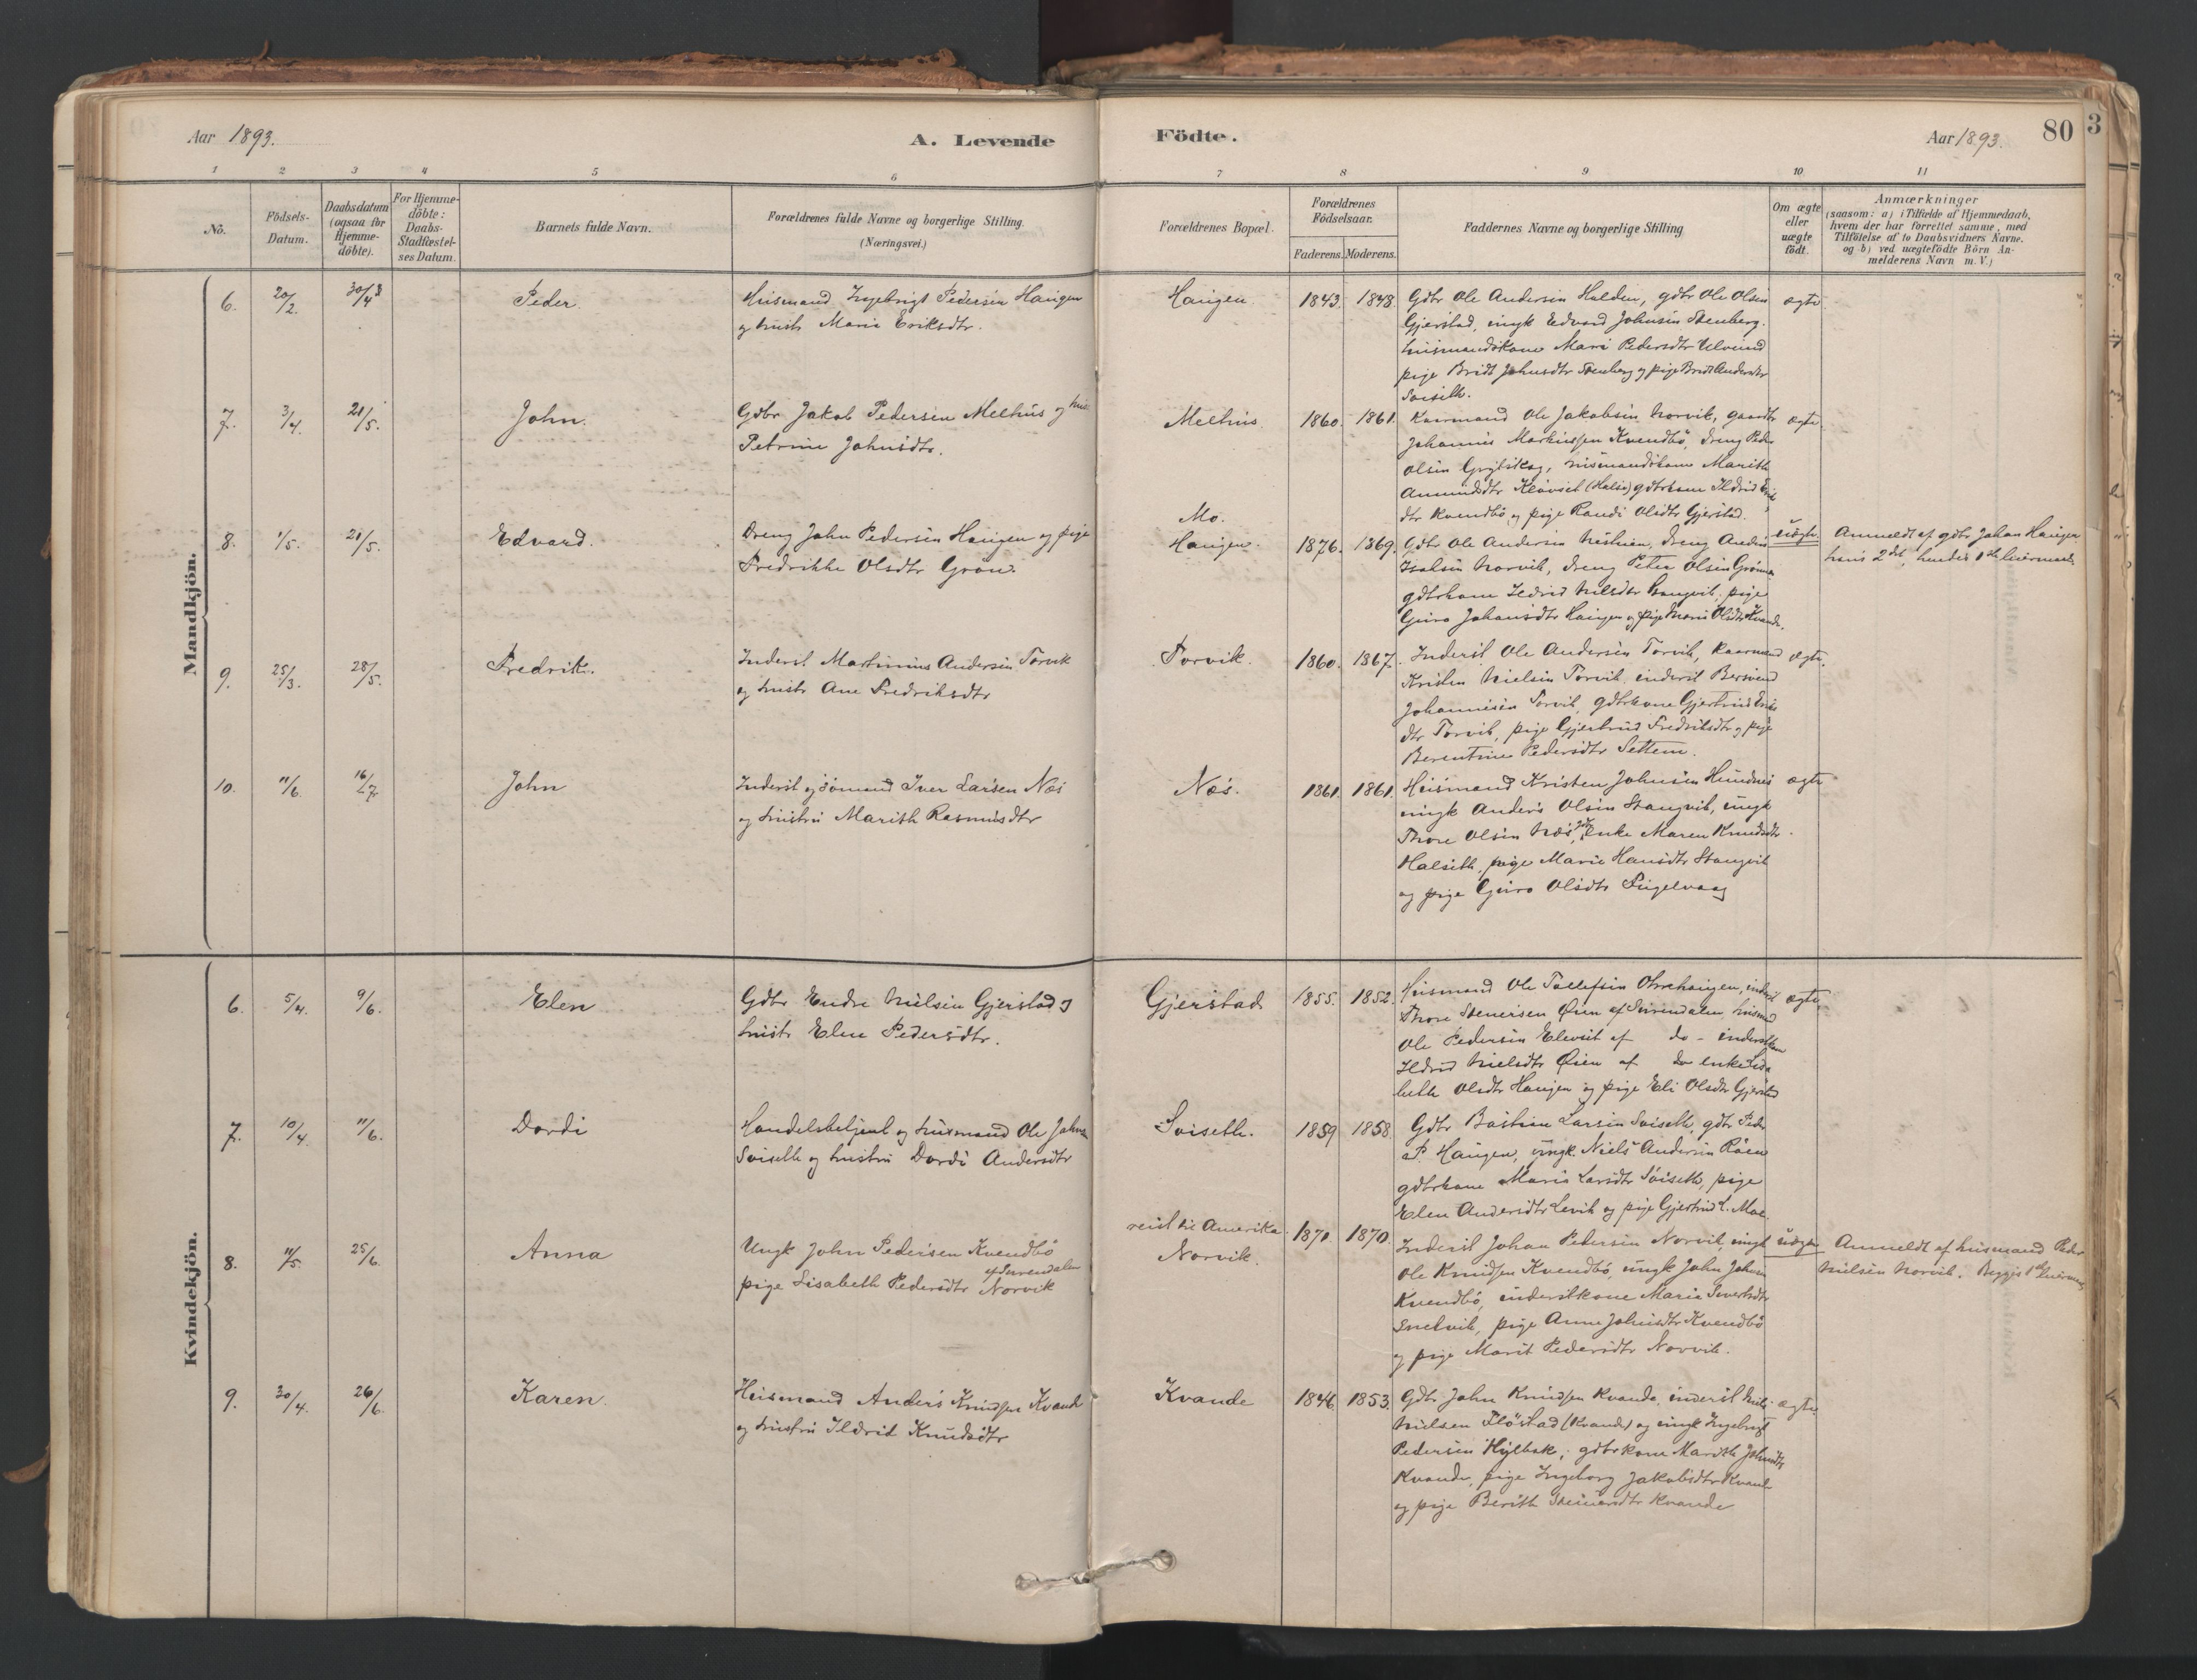 Aar 1893.
A. Levende
Födte.
Aar 1893.
80
3
1 2 3 4 5 6 7 8 9 10 11
No.
Födsels-Datum.
Daabsdatum (ogsaa for Hjemme-döbte).
For Hjemme-döbte: Daabs-Stadfæstel-ses Datum.
Barnets fulde Navn.
Forældrenes fulde Navne og borgerlige Stilling. (Næringsvei.)
Forældrenes Bopæl.
Forældrenes Födselsaar.
Faderens. Moderens.
Faddernes Navne og borgerlige Stilling
Om ægte eller uægte födt.
Anmærkninger
(saasom: a) i Tilfælde af Hjemmedaab,
hvem der har forrettet samme, med
Tilföielse af to Daabsvidners Navne.
og b) ved uægtefödte Börn An-
melderens Navn m. V.)
Mandkjön.
6. 20/2. 30/4 Peder.
Husmand Ingebrigt Pedersen Haugen
og hustr Marie Eriksdtr.
Haugen. 1843. 1848.
Gdbr Ole Andersen Halden, gdbr Ole Olsen
Gjerstad, ungk Edvard Johnsen Stenberg.
husmandskone Mari Pedersdtr Ulvund
pige Bridt Johnsdtr Stenberg og pige Bridt Andersdtr
Sviseth.
ægte
7. 3/4. 21/5. John.
Gdbr Jakob Pedersen Melhus og hus
Petrine Johnsdtr.
Melhus. 1860. 1861.
Kaarmand Ole Jakobsen Norvik, gaardbr
Johannes Markussen Kvendbö, dreng Peder
Olsen, husmandskone Marith
Amundsdtr Klövset (Halse) gdbrkone Ildrid
dtr Kvendbö og pige Randi Olsdtr Gjerstad.
ægte.
8. 1/5. 21/5. Edvard.
Dreng John Pedersen Haugen og pige
Fredrikke Olsdtr Grön.
Mo.
Haugen. 1876. 1869.
Gdbr Ole Andersen, dreng Anders
Norvik, dreng Peter Olsen
gdbrkone Ildrid Nilsdtr Stangvik, pige
Guro Johansdtr Haugen og pige Marie Olsdtr Kvande.
uægte
Anmeldt af gdbr Johan Haugen
hans 2det, hendes 1ste leiermaal.
9. 25/3. 28/5. Fredrik.
Inderst Martinius Andersen Torvik
og hustr Ane Fredriksdtr
Torvik. 1860. 1867.
Inderst Ole Andersen Torvik, Kaarmand
Kristen Nielsen Torvik, inderst Bersvend
Johannesen Torvik, gdbrkone Gjertrud
dtr Torvik, pige Gjertrud Fredriksdtr og pige
Berentine Pedersdtr Settem.
ægte.
10. 11/6. 16/7. John
Inderst og sömand Iver Larsen Næs
og hustru Marith Rasmusdtr
Næs. 1861. 1861.
Husmand Kristen Johnsen Hundnes
ungk Anders Olsen Stangvik, ungk
Thore Olsen Næs, enke Maren Knudsdtr
Halseth, pige Marie Hansdtr Stangvik
og pige Guro Olsdtr
ægte
Kvindekjön.
6. 5/4. 9/6. Elen
Gdbr Endre Nielsen Gjerstad og
hustr Elen Pedersdtr.
Gjerstad 1855. 1852.
Husmand Ole Tollefsen Ohrehaugen, inderst
Thore Stenersen Öien af Surendalen, husmand
Ole Pedersen Elevset af do - inderstkone
Ildrid Nielsdtr Öien af do enke Lisa
beth Olsdtr Haugen og pige Eli Olsdtr Gjerstad
ægte,
7. 10/4. 11/6. Dordi
Handelsbetjent og husmand Ole Johns
Sviseth og hustru Dordi Andersdtr
Sviseth. 1859 1858
Gdbr Bastian Larsen Sviseth, gdbr Peder
P. Haugen, ungk. Niels Andersen Röen
gdbrkone Marie Larsdtr Sviseth, pige
Elen Andersdtr Levik og pige Gjertrud L. Moe.
8. 11/5. 25/6. Anna
Ungk John Pedersen Kvendbö
af Surendalen
pige Lisabeth Pedersdtr Norvik
reist til Amerika
Norvik. 1870. 1870.
Inderst Johan Pedersen Norvik, ungk
Ole Knudsen Kvendbö, ungk John Johnsen
Kvendbö, inderstkone Marie Sivertsdtr
Snekvik, pige Anne Johnsdtr Kvendbö
og pige Marit Pedersdtr Norvik.
uægte
Anmeldt af husmand Peder
Nielsen Norvik. Begges 1ste leiermaal
9. 30/4. 26/6. Karen.
Husmand Anders Knudsen Kvande
og hustru Ildrid Knudsdtr
Kvande 1846. 1853.
Gdbr John Knudsen Kvande, inderst Nils
Nielsen Flöstad (Kvande) og ungk Ingebrigt
Pedersen Hylbak, gdbrkone Marith Johnsdtr
Kvande, pige Ingeborg Jakobsdtr Kvande
og pige Berith Steinarsdtr Kvande
ægte.